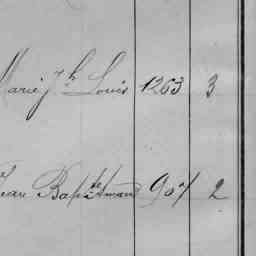 Marie Jh Louis 1263 3
Jean Bapte Amand 907 2